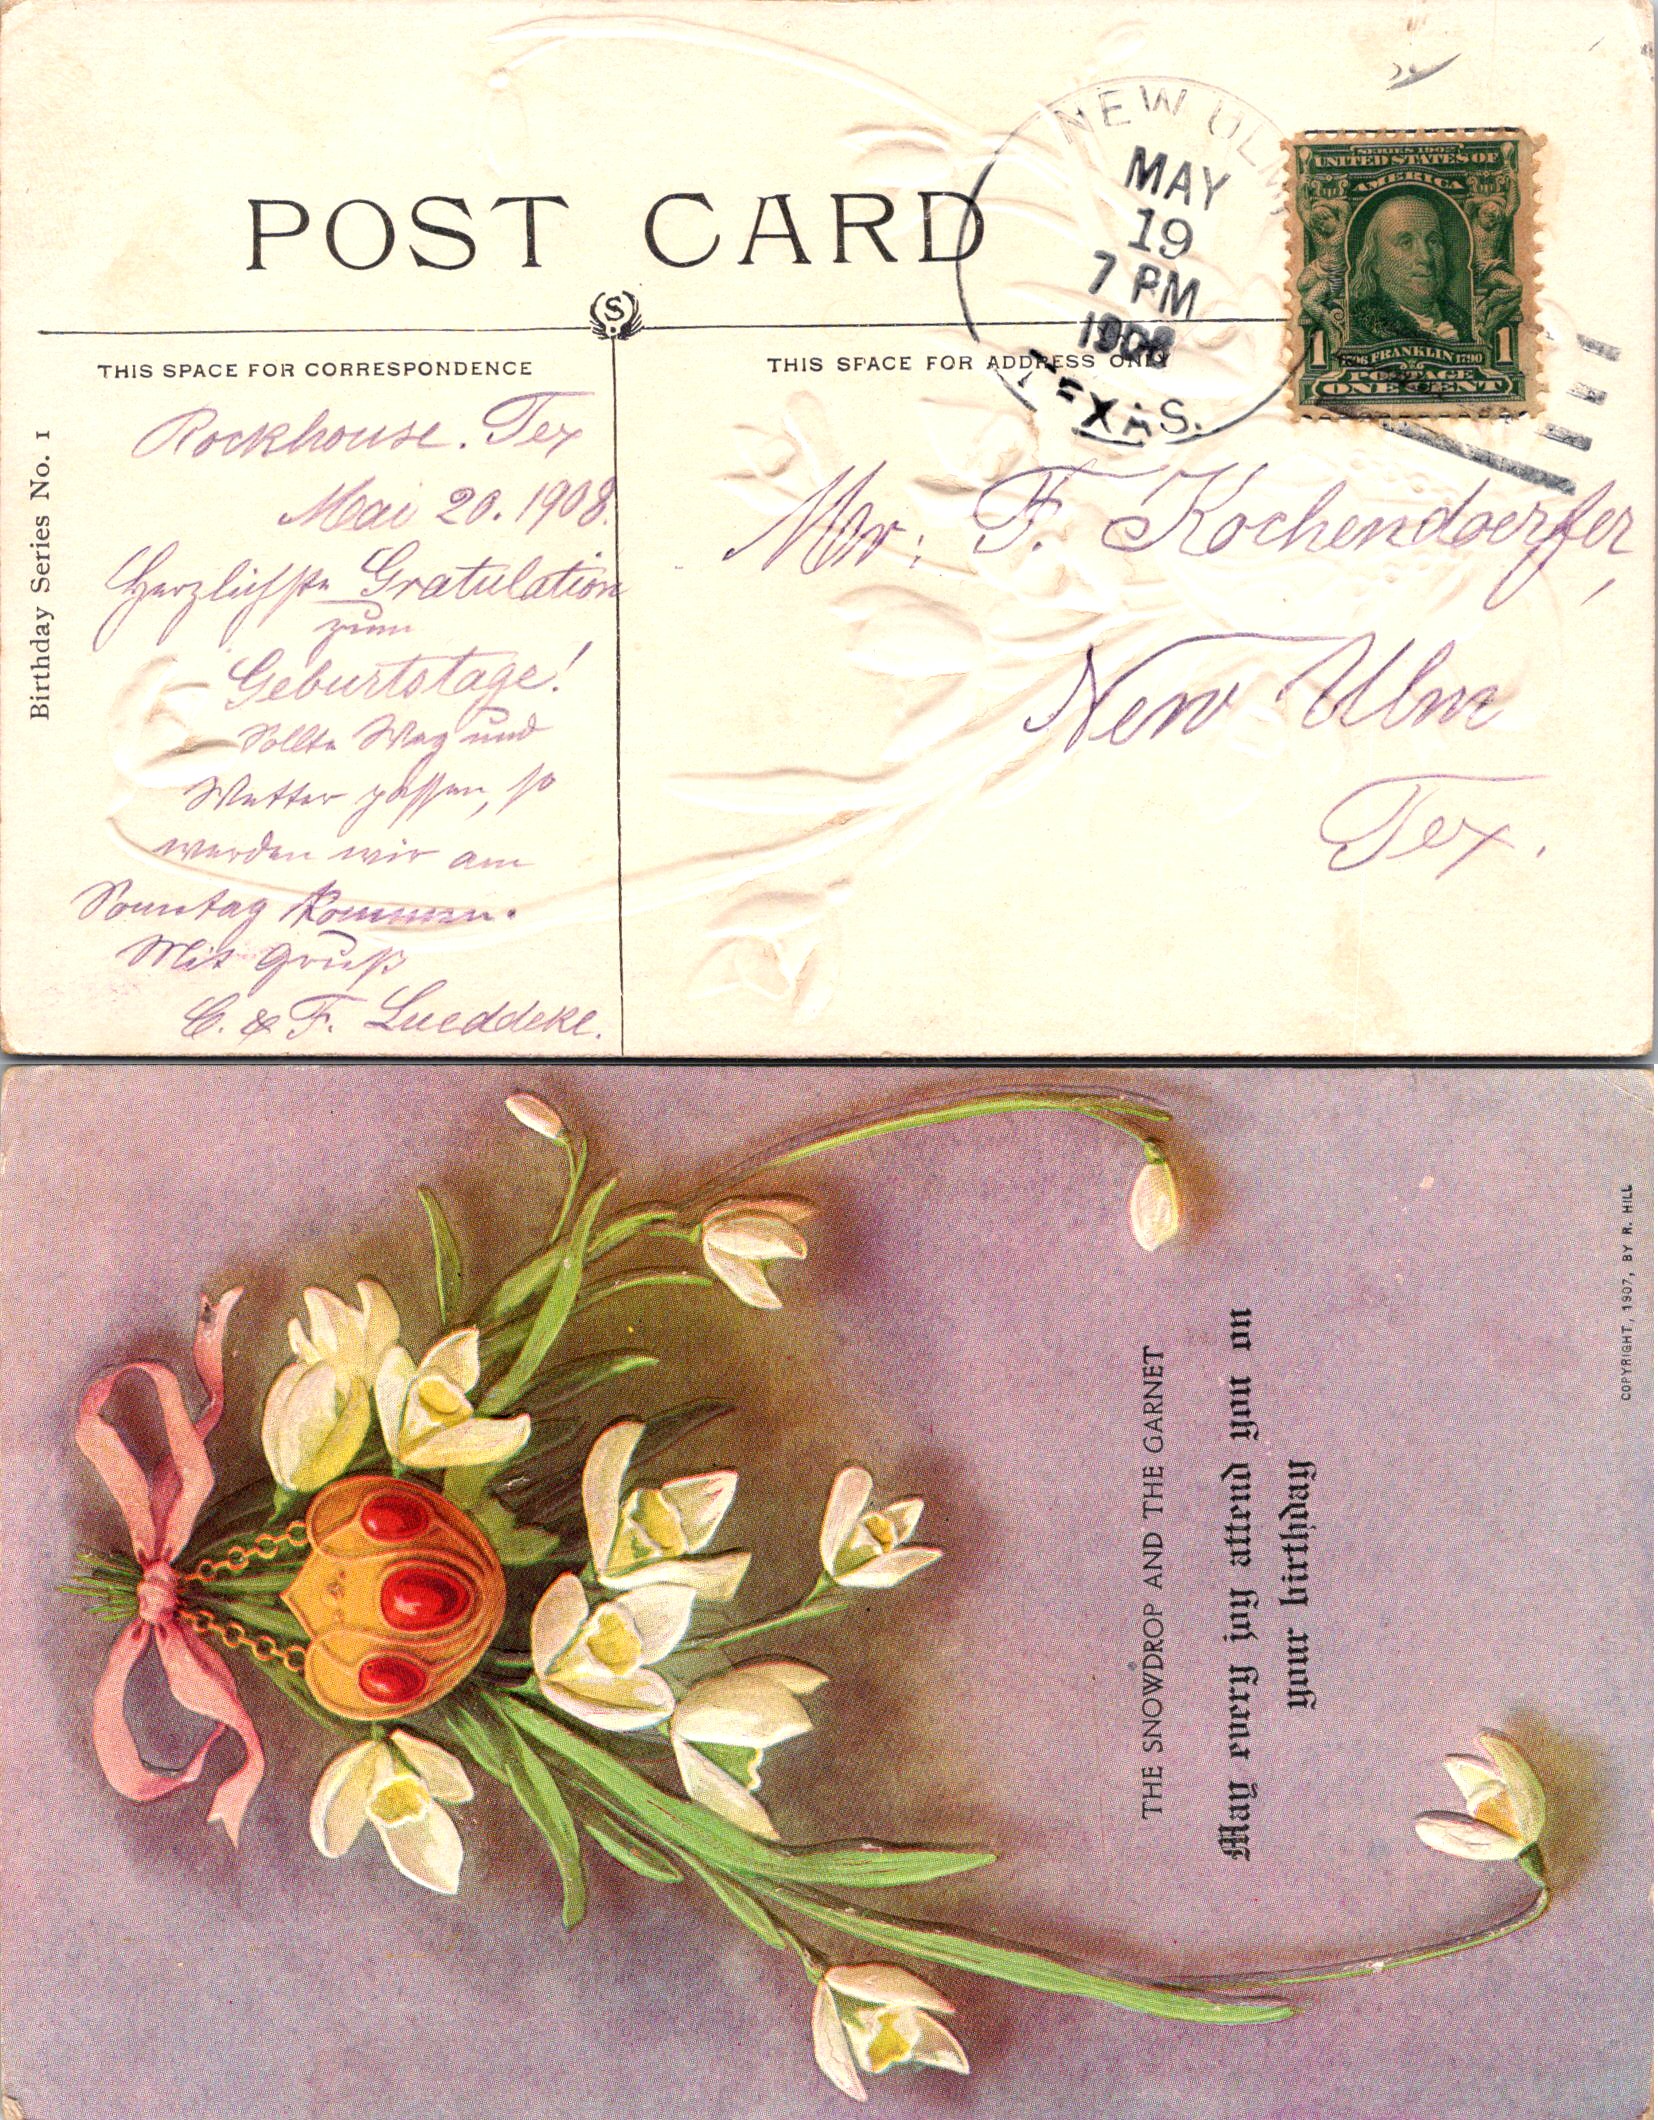 POST CARD
NEW ULM
MAY
19
7 PM
1908
TEXAS.
SERIES 1902
UNITED STATES OF
AMERICA
1706 FRANKLIN 1790
1 1
POSTAGE
ONE CENT
S
THIS SPACE FOR CORRESPONDENCE
THIS SPACE FOR ADDRESS ONLY
Birthday Series No. 1
Rockhouse. Tex
Mai 20. 1908.
Herzlichste Gratulation
zum
Geburtstage!
Sollte Weg und
Wetter passen, so
werden wir am
Sonntag kommen.
Mit Gruß
C. & F. Lueddeke.
Mr: F. Kochendoerfer,
New Ulm
Tex.
THE SNOWDROP AND THE GARNET
May every joy attend you on
your birthday
COPYRIGHT, 1907, BY R. HILL